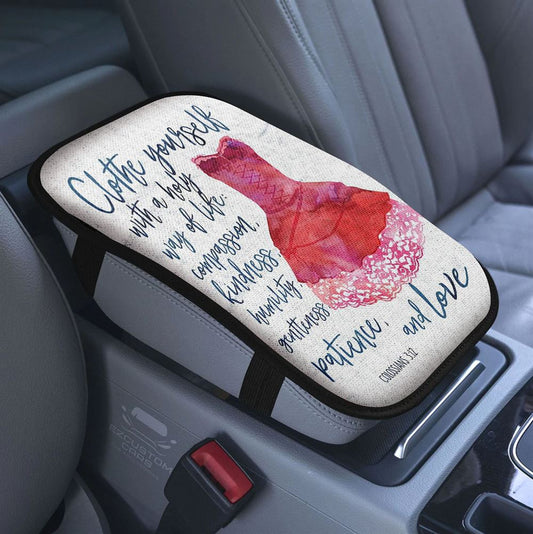 Clothe yourself
with a holy
way of life:
compassion,
kindness,
humility
gentleness
patience,
and love
COLOSSIANS 3:12
EZCUSTOM
CARS